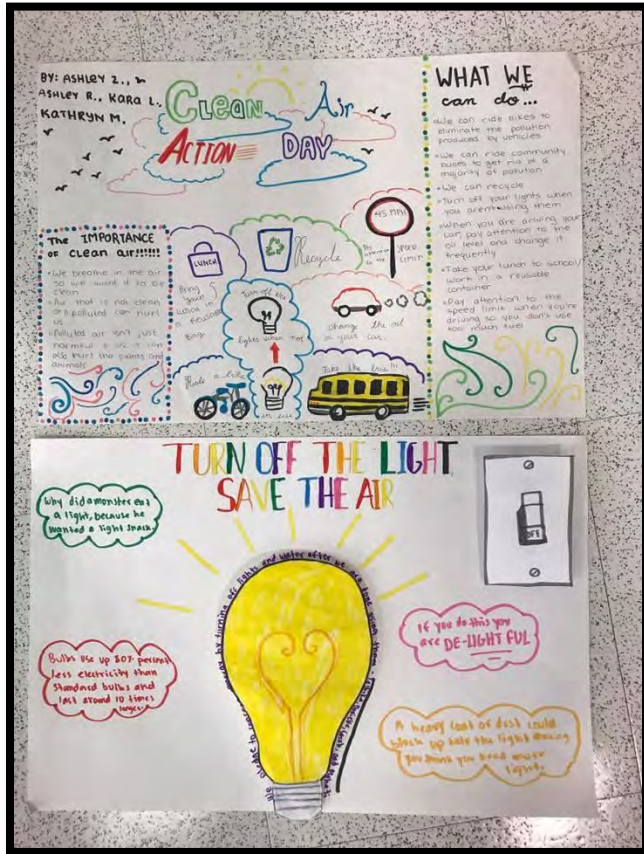 BY: ASHLEY Z.,
ASHLEY R., KARA L.,
KATHRYN M.
CLEAN AIR
ACTION DAY
WHAT WE
can do...
We can ride bikes to
eliminate the pollution
produced by vehicles
We can ride community
buses to get rid of a
majority of pollution
We can recycle
Turn off your lights when
you aren't using them
When you are driving your
car, pay attention to the
oil level and change it
frequently
Take your lunch to school/
work in a reusable
container
Pay attention to the
speed limit when you're
driving so you don't use
too much fuel
The IMPORTANCE
OF clean air!!!!!!!
We breathe in the air
so we want it to be
clean
Air that is not clean
or is polluted can hurt
us
Polluted air isn't just
harmful to us it can
also hurt the plants and
animals
LUNCH
Bring
your
lunch in
a reusable
bag
Recycle
45 MPH
speed
limit
Turn off the
lights when not
in use
change the oil
in your car.
Ride a bike
Take the bus!!!
TURN OFF THE LIGHT
SAVE THE AIR
Why did a monster eat
a light, because he
wanted a light snack.
OFF
If you do this you
are DE-LIGHTFUL
Bulbs use up 80% percent
less electricity than
standard bulbs and
last around 10 times
longer.
A heavy coat of dust could
block up half the light making
you think you need more
light.
by turning off lights and water after we are done using them